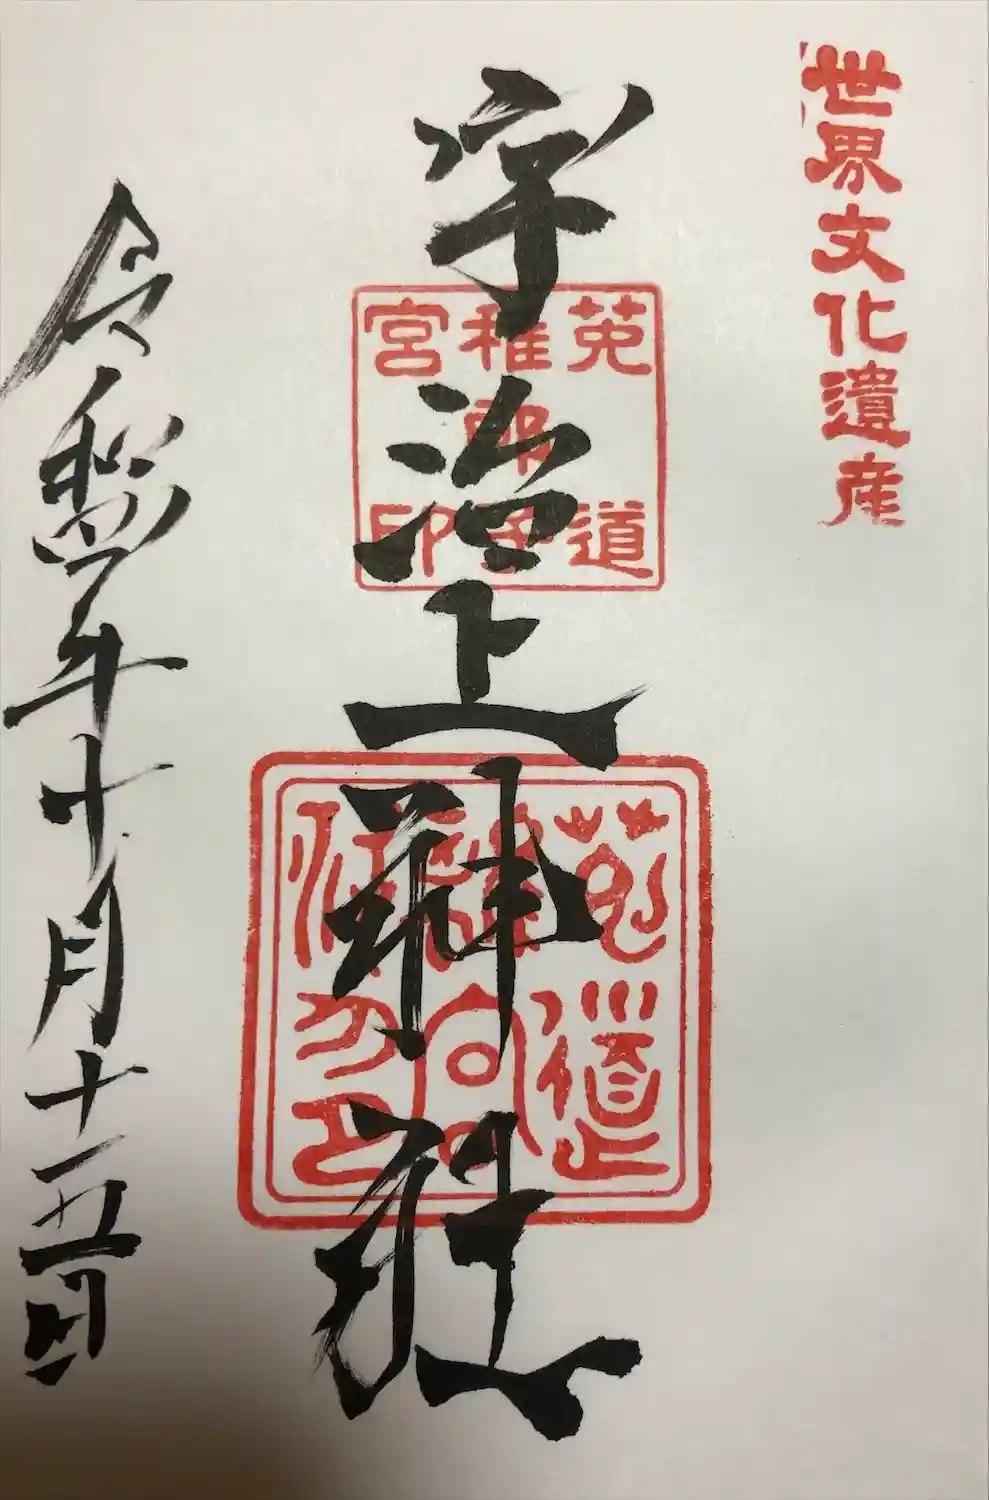 世界文化遺産
宇治上神社
菟道
稚郎子
宮印
令和四年十月十五日